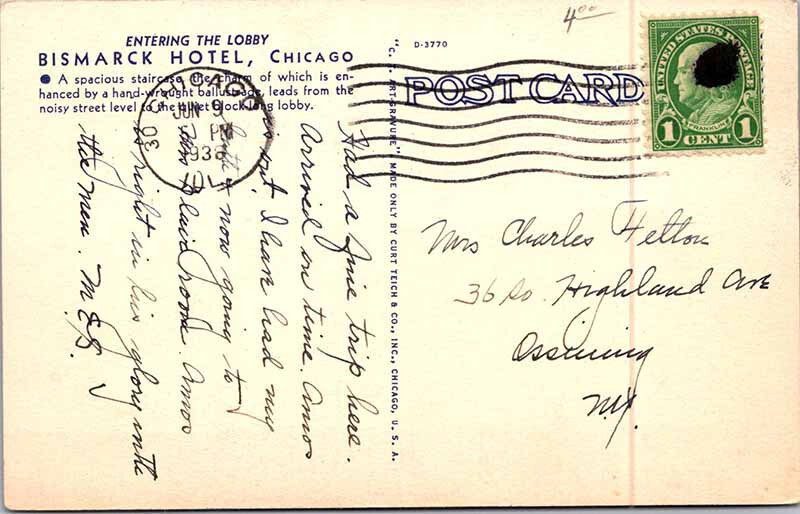 4.00
ENTERING THE LOBBY
BISMARCK HOTEL, CHICAGO
● A spacious staircase, the charm of which is en-
hanced by a hand-wrought ballustrade, leads from the
noisy street level to the quiet block-long lobby.
D-3770
POST CARD
"C. T. ART-GRAVURE" MADE ONLY BY CURT TEICH & CO., INC., CHICAGO, U. S. A.
UNITED STATES POSTAGE
FRANKLIN
1 CENT 1
JUN 9
PM
1938
30
Had a fine trip here.
Arrived on time. Amos
met us. I have had my
bath & now going to
the Blair room. Amos
is right in his glory with
the men. M.E.G.
Mrs Charles Felton
36 So. Highland Ave
Ossining
N.Y.